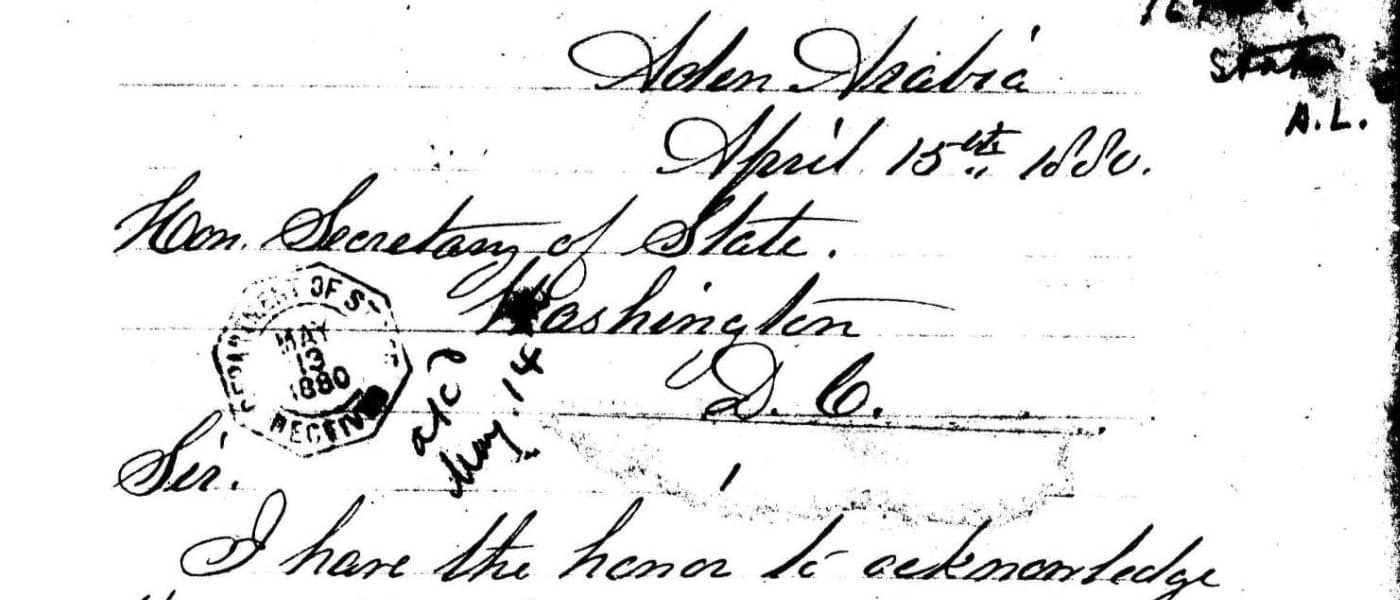 State
A.L.
Aden Arabia
April 15th 1880.
Hon. Secretary of State.
Washington
D. C.
DEPARTMENT OF ST
MAY
13
1880
RECEIVE
May 14
Sir.
I have the honor to acknowledge